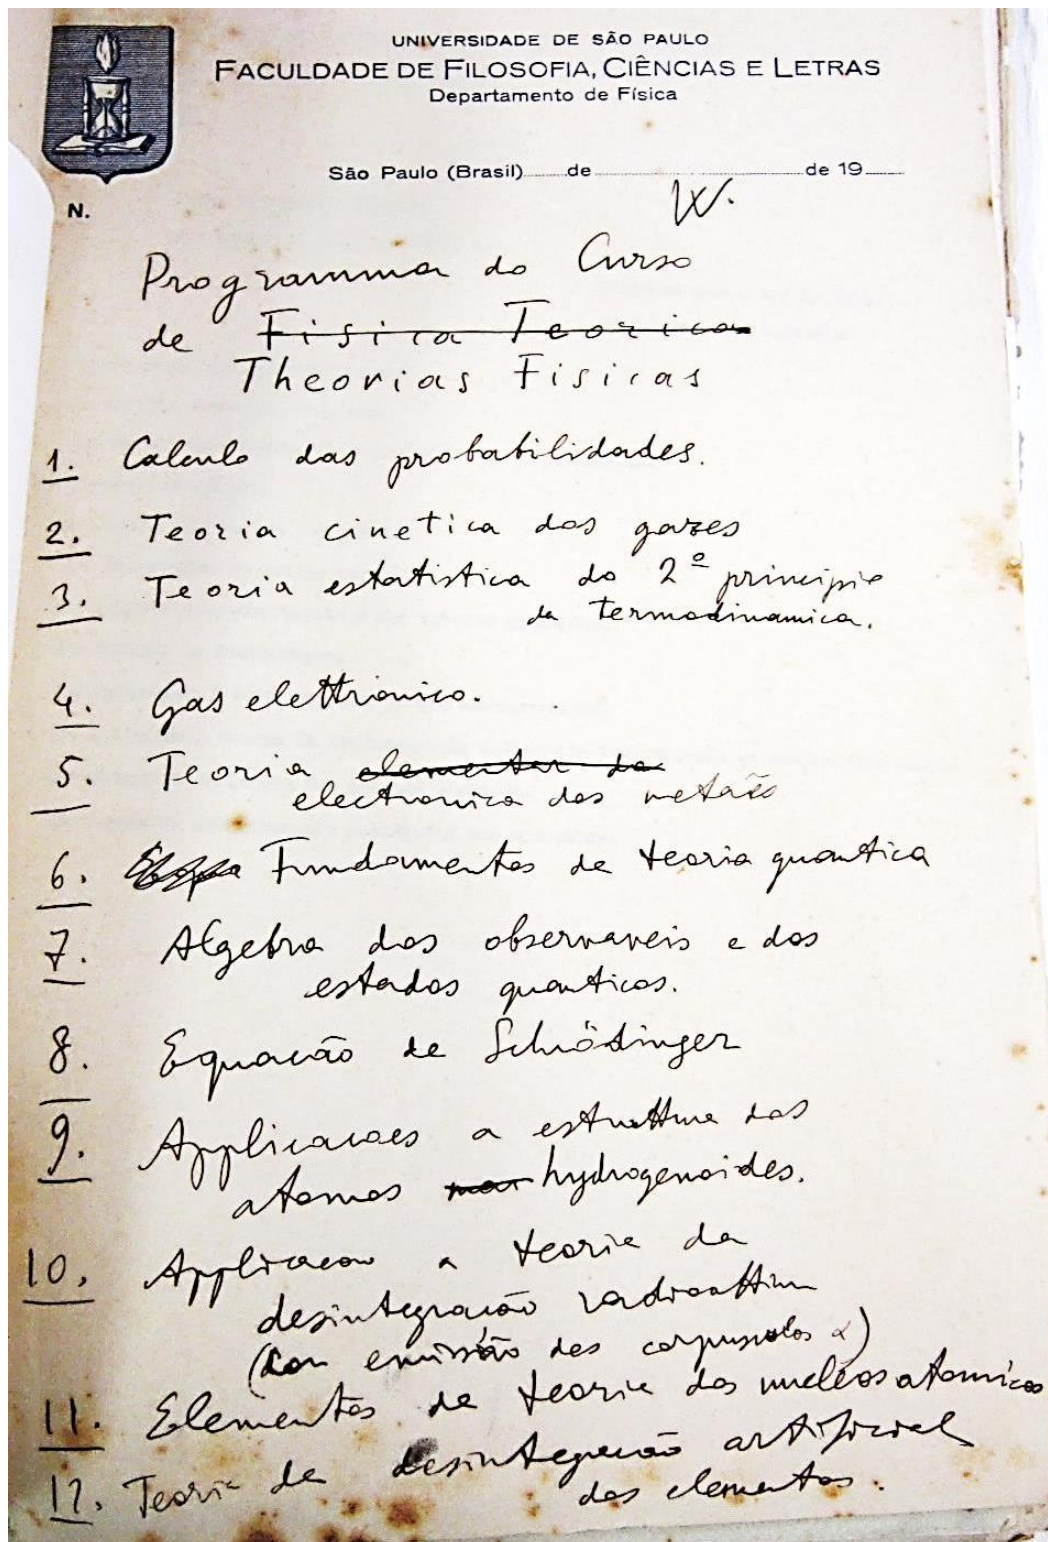 UNIVERSIDADE DE SÃO PAULO
FACULDADE DE FILOSOFIA, CIÊNCIAS E LETRAS
Departamento de Física
São Paulo (Brasil) de de 19
N.
Programma do Curso
de Fisica Teorica
Theorias Fisicas
1. Calculo das probabilidades.
2. Teoria cinetica dos gazes
3. Teoria estatistica do 2º principio
da termodinamica.
4. Gas elettronico.
5. Teoria elementar da
electronica dos metães
6. Fundamentos de teoria quantica
7. Algebra dos observaveis e dos
estados quanticos.
8. Equacão de Schrödinger
9. Applicacoes a estruttura dos
atomos hydrogenoides.
10. Applicacao a teoria da
desintegracão radioattiva
(con emissão des corpusculos α)
11. Elementos de teoria dos nucleos atomicos
12. Teoria de desintegracão artificial
dos elementos.